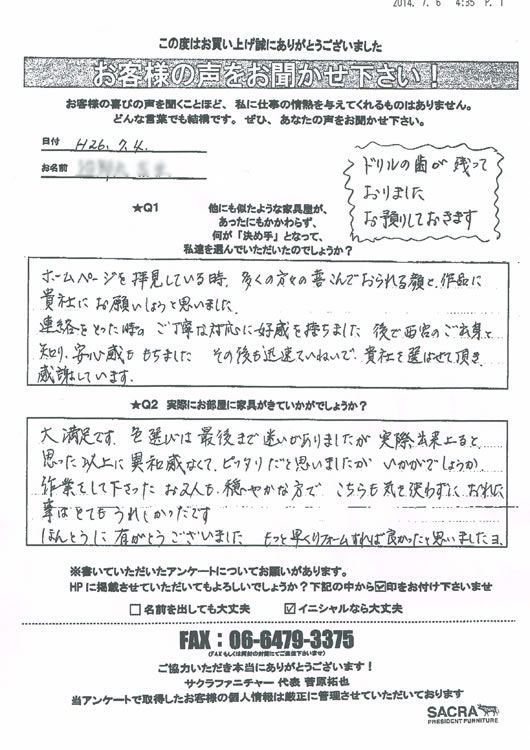 2014. 7. 6 4:35 P. 1
この度はお買い上げ誠にありがとうございました
お客様の声をお聞かせ下さい！
お客様の喜びの声を聞くことほど、私に仕事の情熱を与えてくれるものはありません。
どんな言葉でも結構です。ぜひ、あなたの声をお聞かせ下さい。
日付 H26. 7. 4.
お名前
ドリルの歯が残って
おりました
お預りしておきます
★Q1 他にも似たような家具屋が、
あったにもかかわらず、
何が「決め手」となって、
私達を選んでいただいたのでしょうか？
ホームページを拝見している時、多くの方々の喜んでおられる顔と、作品に
貴社にお願いしようと思いました。
連絡をとった時の ご丁寧な対応に好感を持ちました 後で西宮のご出身と
知り、安心感ももちました その後も迅速ていねいで、貴社を選ばせて頂き
感謝しています。
★Q2 実際にお部屋に家具がきていかがでしょうか？
大満足です。色選びは最後まで迷いがありましたが 実際出来上ると
思った以上に異和感なくて、ピッタリだと思いましたが いかがでしょうか
作業をして下さった お2人も、穏やかな方で こちらも気を使わずに、おれた
事はとてもうれしかったです
ほんとうに有がとうございました もっと早くリフォームすれば良かったと思いましたヨ、
※書いていただいたアンケートについてお願いがあります。
HPに掲載させていただいてもよろしいでしょうか？下記の中から☑印をお付け下さいませ
□ 名前を出しても大丈夫 ☑ イニシャルなら大丈夫
FAX：06-6479-3375
(FAXもしくは同封の封筒にてご返信下さいませ)
ご協力いただき本当にありがとうございます！
サクラファニチャー 代表 菅原拓也
当アンケートで取得したお客様の個人情報は厳正に管理させていただいております
SACRA
PRESIDENT FURNITURE